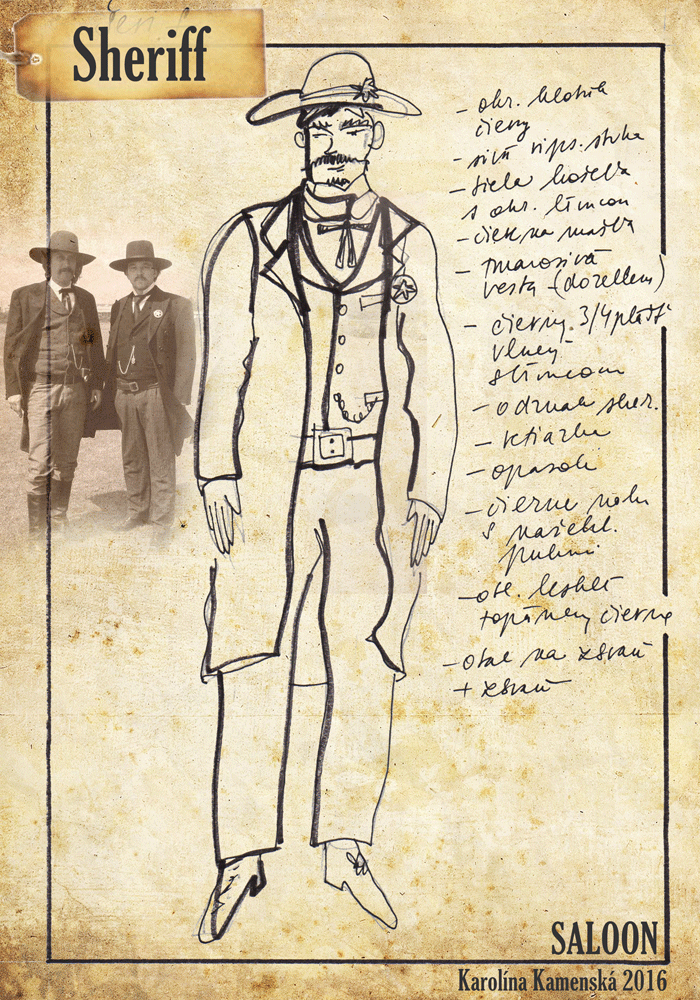 Sheriff
- okr. klobúk
čierny
- sivá rips. stuha
- biela košeľa
s okr. límcom
- čierna mašľa
- tmavosivá
vesta - (dozellem)
- čierny 3/4 plášť
vlnený
s límcom
- odznak sher.
- retiazka
- opasok
- čierne noh.
s našebl.
pukmi
- otl. lesklé
topánky čierne
- obal na zbraň
+ zbraň
SALOON
Karolína Kamenská 2016